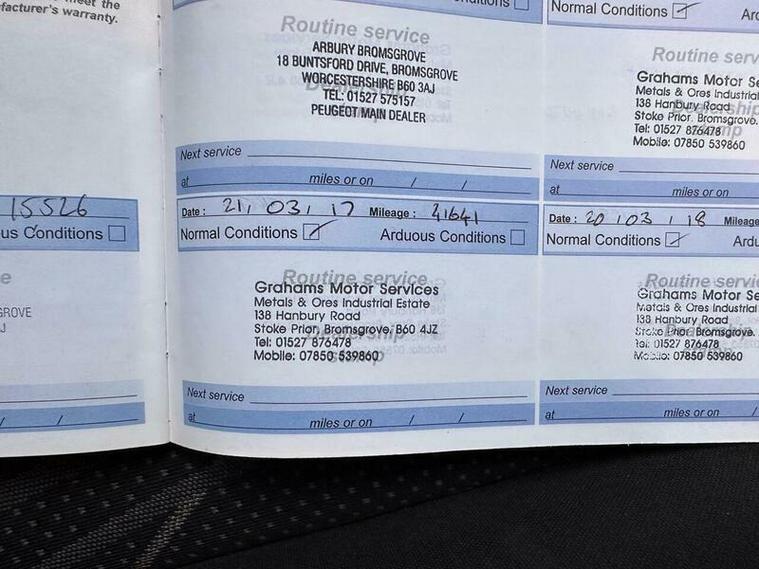 meet the
facturer's warranty.
15526
us Conditions
e
GROVE
J
/ /
ditions
Routine service
ARBURY BROMSGROVE
18 BUNTSFORD DRIVE, BROMSGROVE
WORCESTERSHIRE B60 3AJ
TEL: 01527 575157
PEUGEOT MAIN DEALER
Next service
at miles or on / /
Date: 21, 03, 17 Mileage: 31641
Normal Conditions Arduous Conditions
Routine service
Grahams Motor Services
Metals & Ores Industrial Estate
138 Hanbury Road
Stoke Prior, Bromsgrove, B60 4JZ
Tel: 01527 876478
Mobile: 07850 539860
Next service
at miles or on / /
Normal Conditions Ard
Routine serv
Grahams Motor Se
Metals & Ores Industrial
138 Hanbury Road
Stoke Prior, Bromsgrove,
Tel: 01527 876478
Mobile: 07850 539860
Next service
at miles or on
Date: 20 , 03 , 18 Mileage
Normal Conditions Ardu
Routine servic
Grahams Motor Se
Metals & Ores Industrial
138 Hanbury Road
Stoke Prior, Bromsgrove.
Tel: 01527 876478
Mobile: 07850 539860
Next service
at miles or on /